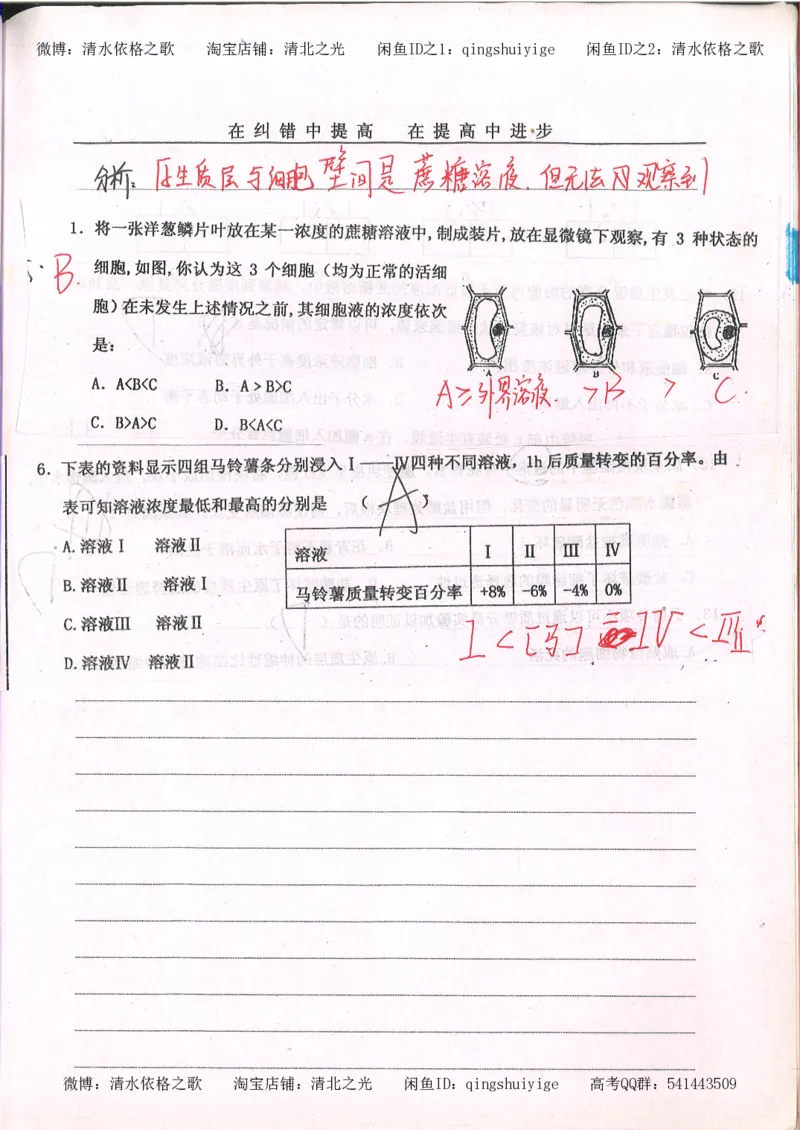 微博：清水依格之歌 淘宝店铺：清北之光 闲鱼ID之1：qingshuiyige 闲鱼ID之2：清水依格之歌
在纠错中提高 在提高中进步
分析：原生质层与细胞壁间是蔗糖溶液．但无法用观察到
1. 将一张洋葱鳞片叶放在某一浓度的蔗糖溶液中,制成装片,放在显微镜下观察,有 3 种状态的
B.
细胞,如图,你认为这 3 个细胞（均为正常的活细
胞）在未发生上述情况之前,其细胞液的浓度依次
是：
A B C
A. A<B<C B. A＞B>C
A≥外界溶液． >B > C.
C. B>A>C D. B<A<C
6. 下表的资料显示四组马铃薯条分别浸入Ⅰ——Ⅳ四种不同溶液，1h后质量转变的百分率。由
表可知溶液浓度最低和最高的分别是 （ A ）
A.溶液Ⅰ 溶液Ⅱ
溶液 Ⅰ Ⅱ Ⅲ Ⅳ
B.溶液Ⅱ 溶液Ⅰ
马铃薯质量转变百分率 +8% -6% -4% 0%
C.溶液Ⅲ 溶液Ⅱ
D.溶液Ⅳ 溶液Ⅱ
微博：清水依格之歌 淘宝店铺：清北之光 闲鱼ID：qingshuiyige 高考QQ群：541443509